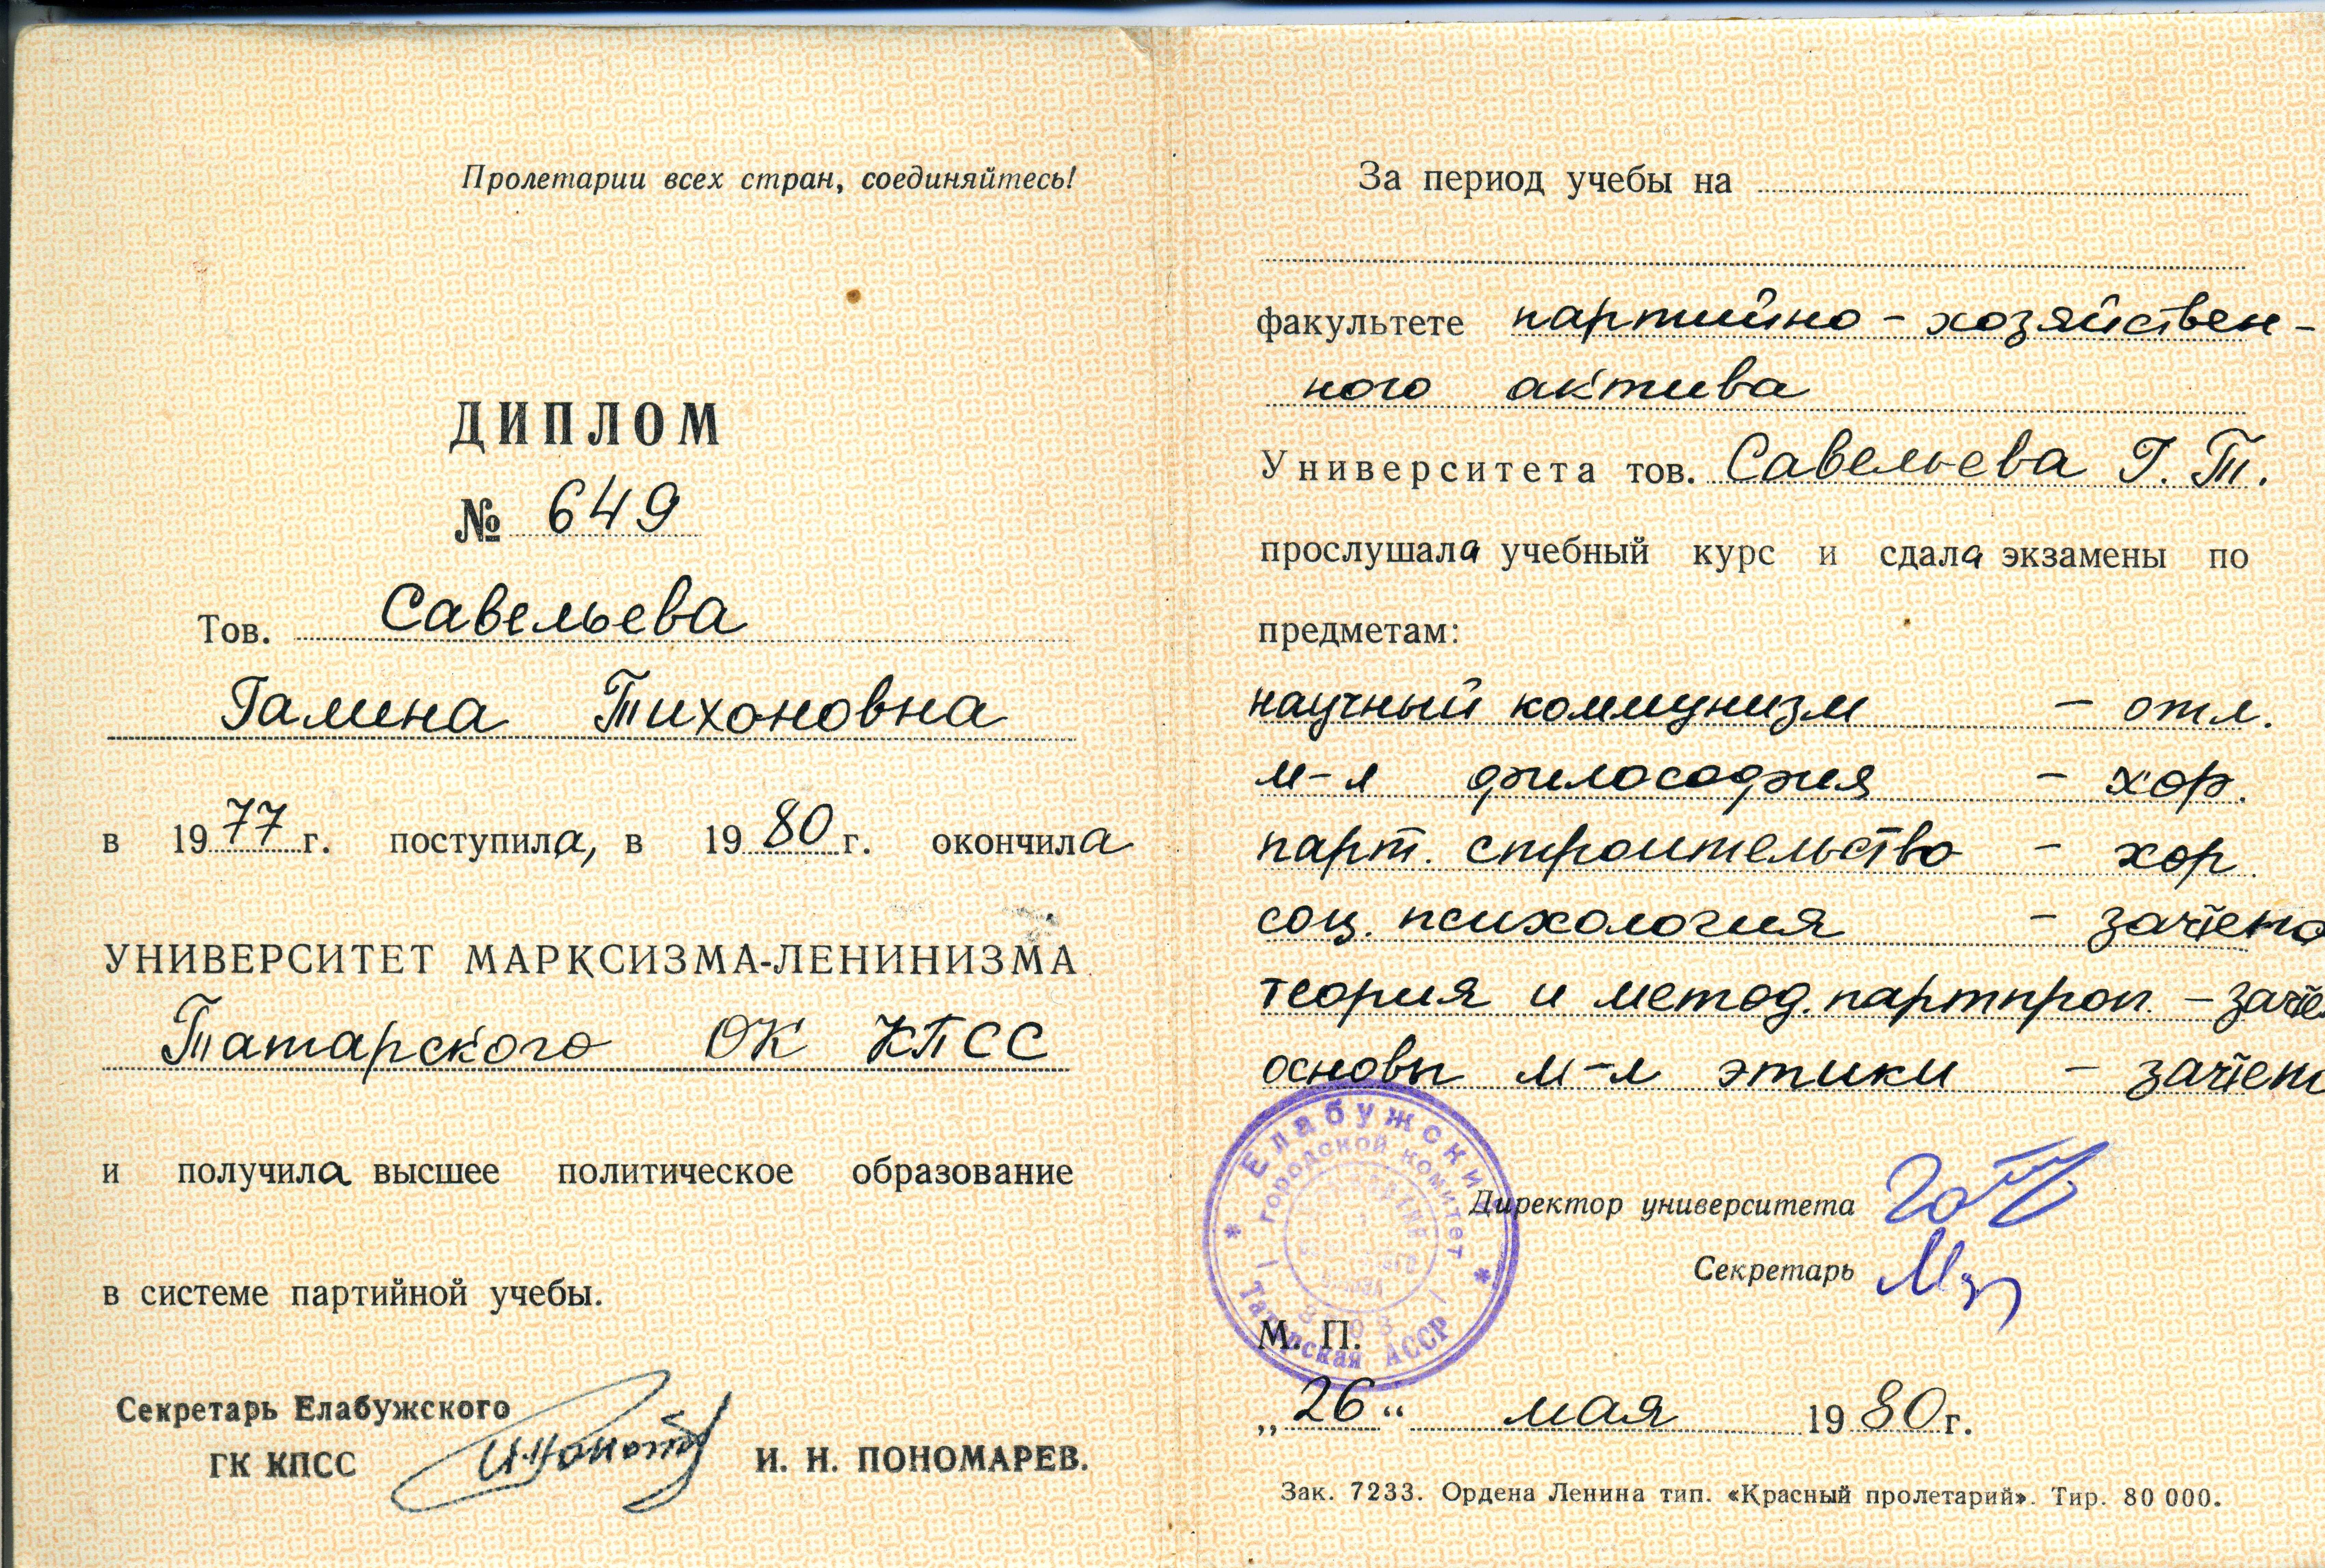 Пролетарии всех стран, соединяйтесь!
ДИПЛОМ
№ 649
Тов. Савельева
Галина Тихоновна
в 1977 г. поступила, в 1980 г. окончила
УНИВЕРСИТЕТ МАРКСИЗМА-ЛЕНИНИЗМА
Татарского ОК КПСС
и получила высшее политическое образование
в системе партийной учебы.
Секретарь Елабужского
ГК КПСС
И. Н. ПОНОМАРЕВ.
За период учебы на
факультете партийно - хозяйствен-
ного актива
Университета тов. Савельева Г. Т.
прослушала учебный курс и сдала экзамены по
предметам:
научный коммунизм - отл.
м-л философия - хор.
парт. строительство - хор
соц. психология - зачтено
теория и метод. партпроп. - зачте
основы м-л этики - зачтен
Елабужский
городской комитет
Татарская АССР
Директор университета
Секретарь
М. П.
„26“ мая 1980 г.
Зак. 7233. Ордена Ленина тип. «Красный пролетарий». Тир. 80 000.